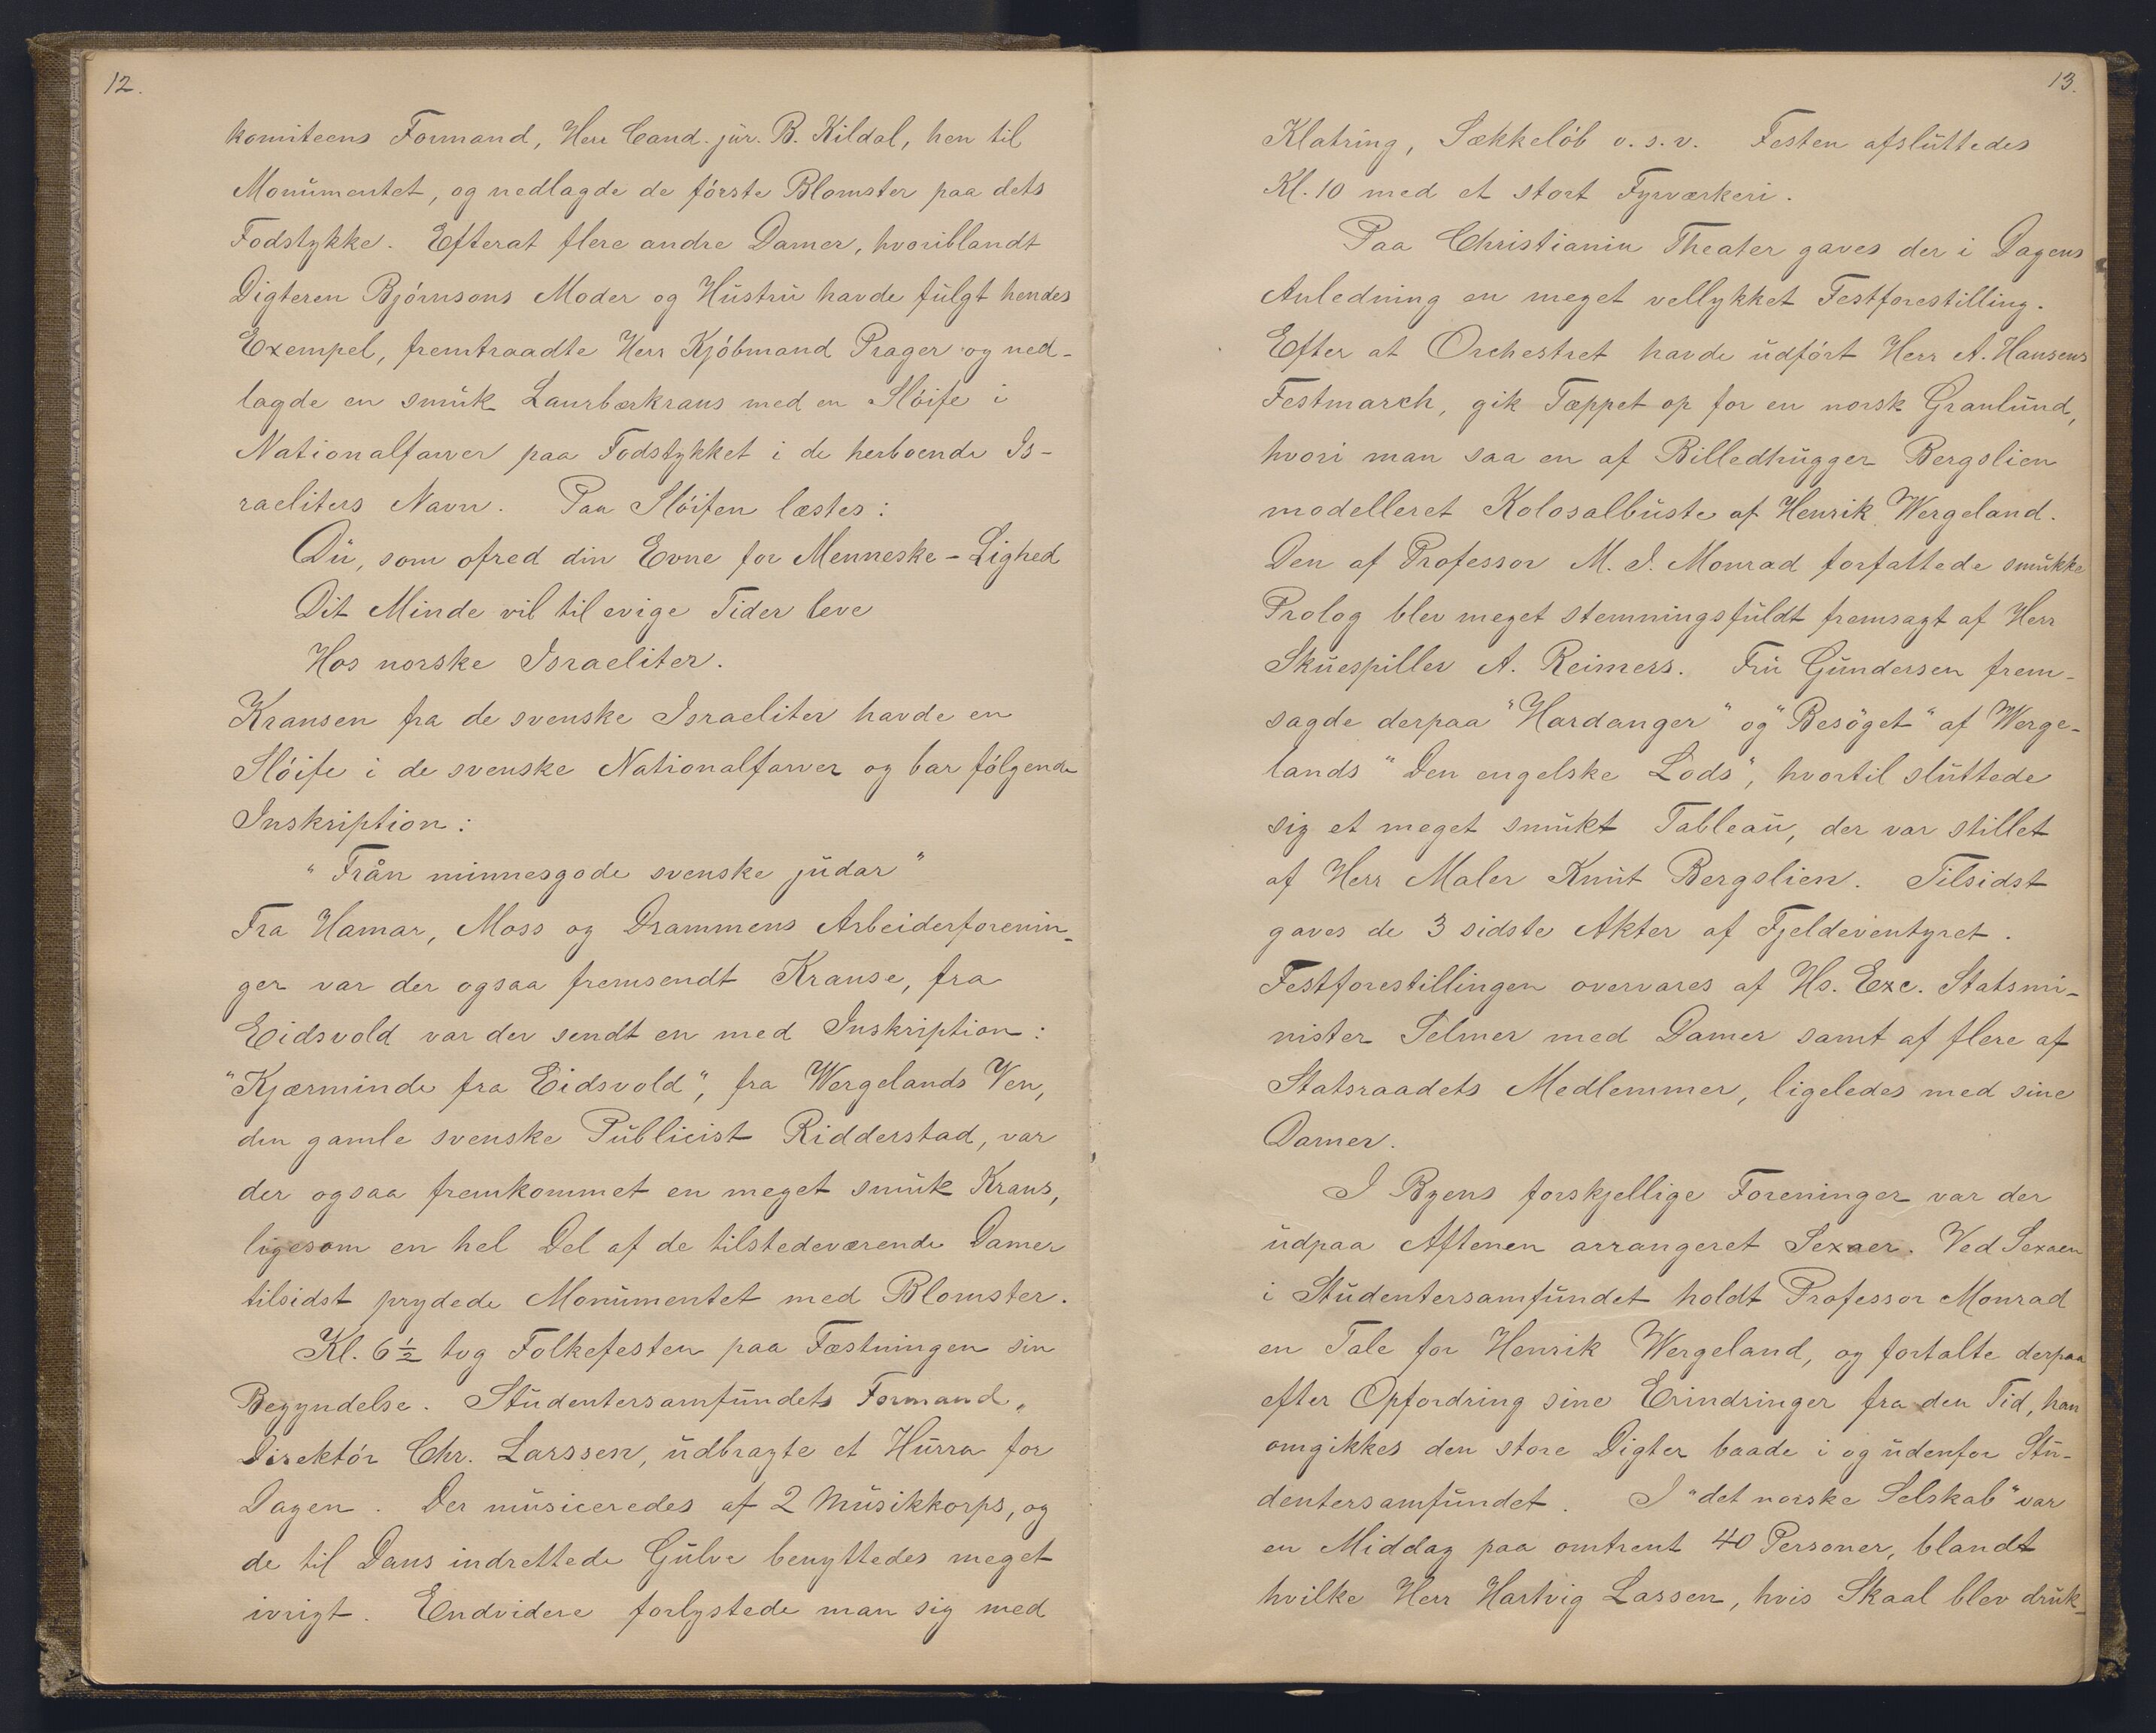 12.
komiteens Formand, Herr Cand. jur. B. Kildal, hen til
Monumentet, og nedlagde de første Blomster paa dets
Fodstykke. Efterat flere andre Damer, hvoriblandt
Digteren Bjørnsons Moder og Hustru havde fulgt hendes
Exempel, fremtraadte Herr Kjøbmand Prager og ned-
lagde en smuk Laurbærkrans med en Sløife i
Nationalfarver paa Fodstykket i de herboende Is-
raeliters Navn. Paa Sløifen læstes:
Du, som ofred din Evne for Menneske-Lighed
Dit Minde vil til evige Tider leve
Hos norske Israeliter.
Kransen fra de svenske Israeliter havde en
Sløife i de svenske Nationalfarver og bar følgende
Inskription:
"Från minnesgode svenske judar"
Fra Hamar, Moss og Drammens Arbeiderforenin-
ger var der ogsaa fremsendt Kranse, fra
Eidsvold var der sendt en med Inskription:
"Kjærminde fra Eidsvold", fra Wergelands Ven,
den gamle svenske Publicist Ridderstad, var
der ogsaa fremkommet en meget smuk Krans,
ligesom en hel Del af de tilstedeværende Damer
tilsidst prydede Monumentet med Blomster.
Kl. 6½ tog Folkefesten paa Fæstningen sin
Begyndelse. Studentersamfundets Formand,
Direktør Chr. Larssen, udbragte et Hurra for
Dagen. Der musiceredes af 2 Musikkorps, og
de til Dans indrettede Gulve benyttedes meget
ivrigt. Endvidere forlystede man sig med
13.
Klatring, Sækkeløb o.s.v. Festen afsluttedes
Kl. 10 med et stort Fyrværkeri.
Paa Christiania Theater gaves der i Dagens
Anledning en meget vellykket Festforestilling.
Efter at Orchestret havde udført Herr A. Hansens
Festmarch, gik Tæppet op for en norsk Granlund,
hvori man saa en af Billedhugger Bergslien
modelleret Kolosalbuste af Henrik Wergeland.
Den af Professor M. J. Monrad forfattede smukke
Prolog blev meget stemningsfuldt fremsagt af Herr
Skuespiller A. Reimers. Fru Gundersen frem-
sagde derpaa "Hardanger" og "Besøget" af Werge-
lands "Den engelske Lods", hvortil sluttede
sig et meget smukt Tableau, der var stillet
af Herr Maler Knut Bergslien. Tilsidst
gaves de 3 sidste Akter af Fjeldeventyret.
Festforestillingen overvares af Hs. Exc. Statsmi-
nister Selmer med Damer samt af flere af
Statsraadets Medlemmer, ligeledes med sine
Damer.
I Byens forskjellige Foreninger var der
udpaa Aftenen arrangeret Sexaer. Ved Sexaen
i Studentersamfundet holdt Professor Monrad
en Tale for Henrik Wergeland, og fortalte derpaa
efter Opfordring sine Erindringer fra den Tid, han
omgikkes den store Digter baade i og udenfor Stu-
dentersamfundet. I "det norske Selskab" var
en Middag paa omtrent 40 Personer, blandt
hvilke Herr Hartvig Lassen, hvis Skaal blev druk-